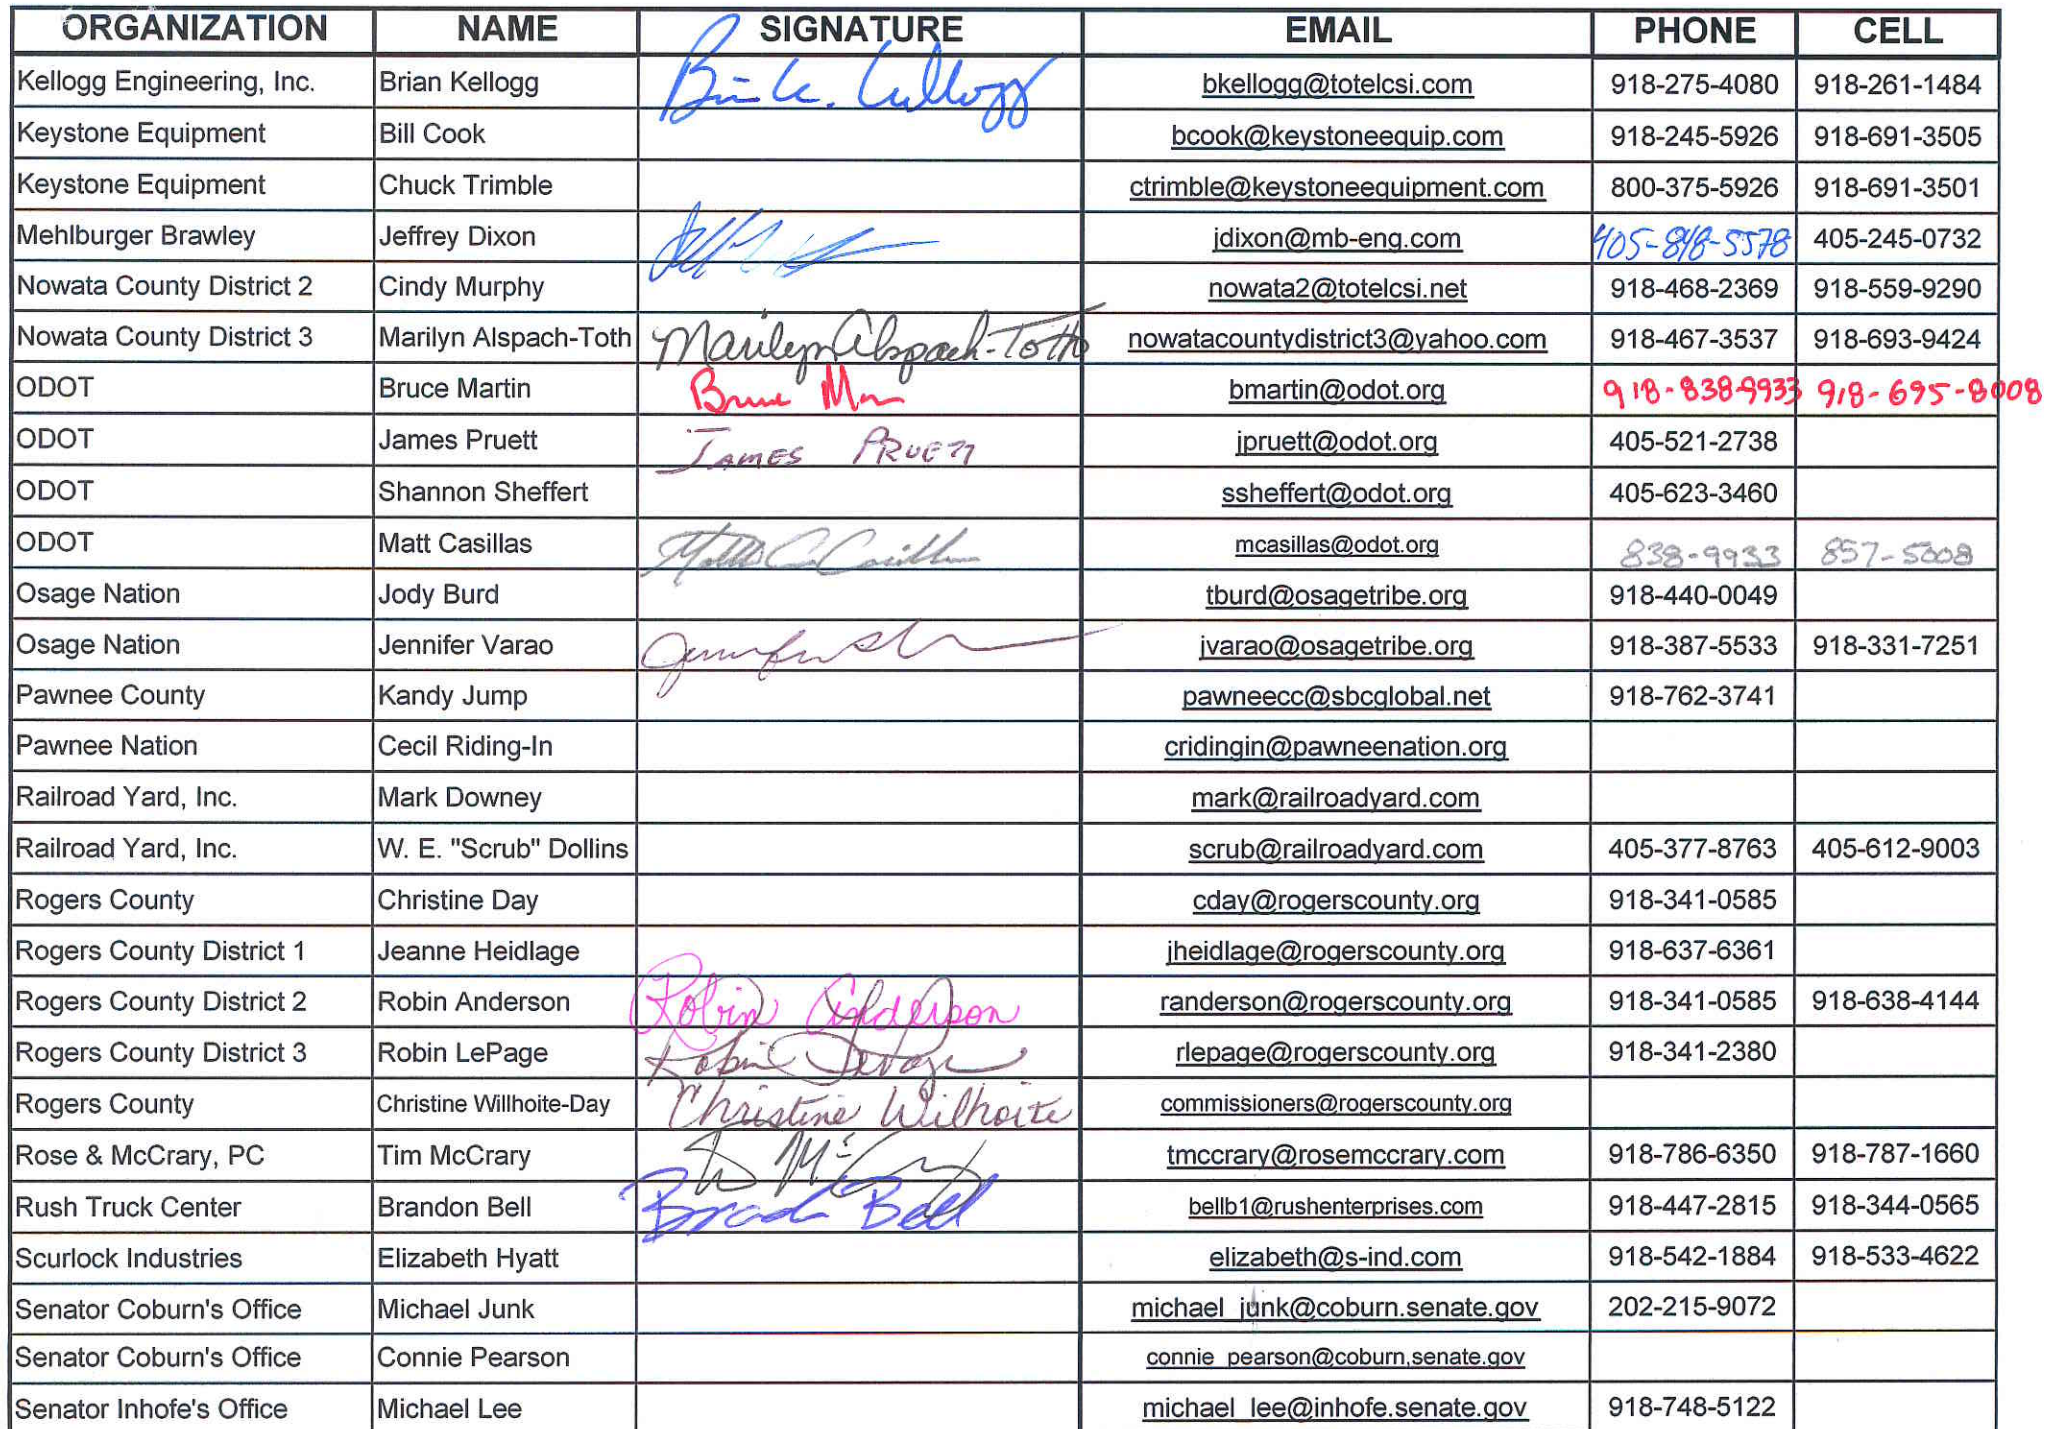 ORGANIZATION NAME SIGNATURE EMAIL PHONE CELL
Kellogg Engineering, Inc. Brian Kellogg bkellogg@totelcsi.com 918-275-4080 918-261-1484
Keystone Equipment Bill Cook bcook@keystoneequip.com 918-245-5926 918-691-3505
Keystone Equipment Chuck Trimble ctrimble@keystoneequipment.com 800-375-5926 918-691-3501
Mehlburger Brawley Jeffrey Dixon jdixon@mb-eng.com 405-848-5578 405-245-0732
Nowata County District 2 Cindy Murphy nowata2@totelcsi.net 918-468-2369 918-559-9290
Nowata County District 3 Marilyn Alspach-Toth Marilyn Alspach-Toth nowatacountydistrict3@yahoo.com 918-467-3537 918-693-9424
ODOT Bruce Martin Bruce bmartin@odot.org 918-838-9933 918-695-8008
ODOT James Pruett JAMES PRUETT jpruett@odot.org 405-521-2738
ODOT Shannon Sheffert ssheffert@odot.org 405-623-3460
ODOT Matt Casillas mcasillas@odot.org 838-9933 857-5008
Osage Nation Jody Burd tburd@osagetribe.org 918-440-0049
Osage Nation Jennifer Varao jvarao@osagetribe.org 918-387-5533 918-331-7251
Pawnee County Kandy Jump pawneecc@sbcglobal.net 918-762-3741
Pawnee Nation Cecil Riding-In cridingin@pawneenation.org
Railroad Yard, Inc. Mark Downey mark@railroadyard.com
Railroad Yard, Inc. W. E. "Scrub" Dollins scrub@railroadyard.com 405-377-8763 405-612-9003
Rogers County Christine Day cday@rogerscounty.org 918-341-0585
Rogers County District 1 Jeanne Heidlage jheidlage@rogerscounty.org 918-637-6361
Rogers County District 2 Robin Anderson Robin Anderson randerson@rogerscounty.org 918-341-0585 918-638-4144
Rogers County District 3 Robin LePage Robin LePage rlepage@rogerscounty.org 918-341-2380
Rogers County Christine Willhoite-Day Christine Wilhoite commissioners@rogerscounty.org
Rose & McCrary, PC Tim McCrary tmccrary@rosemccrary.com 918-786-6350 918-787-1660
Rush Truck Center Brandon Bell Bell bellb1@rushenterprises.com 918-447-2815 918-344-0565
Scurlock Industries Elizabeth Hyatt elizabeth@s-ind.com 918-542-1884 918-533-4622
Senator Coburn's Office Michael Junk michael_junk@coburn.senate.gov 202-215-9072
Senator Coburn's Office Connie Pearson connie_pearson@coburn,senate.gov
Senator Inhofe's Office Michael Lee michael_lee@inhofe.senate.gov 918-748-5122